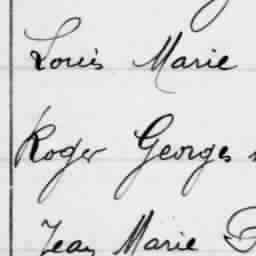 Louis Marie
Roger Georges
Jean Marie